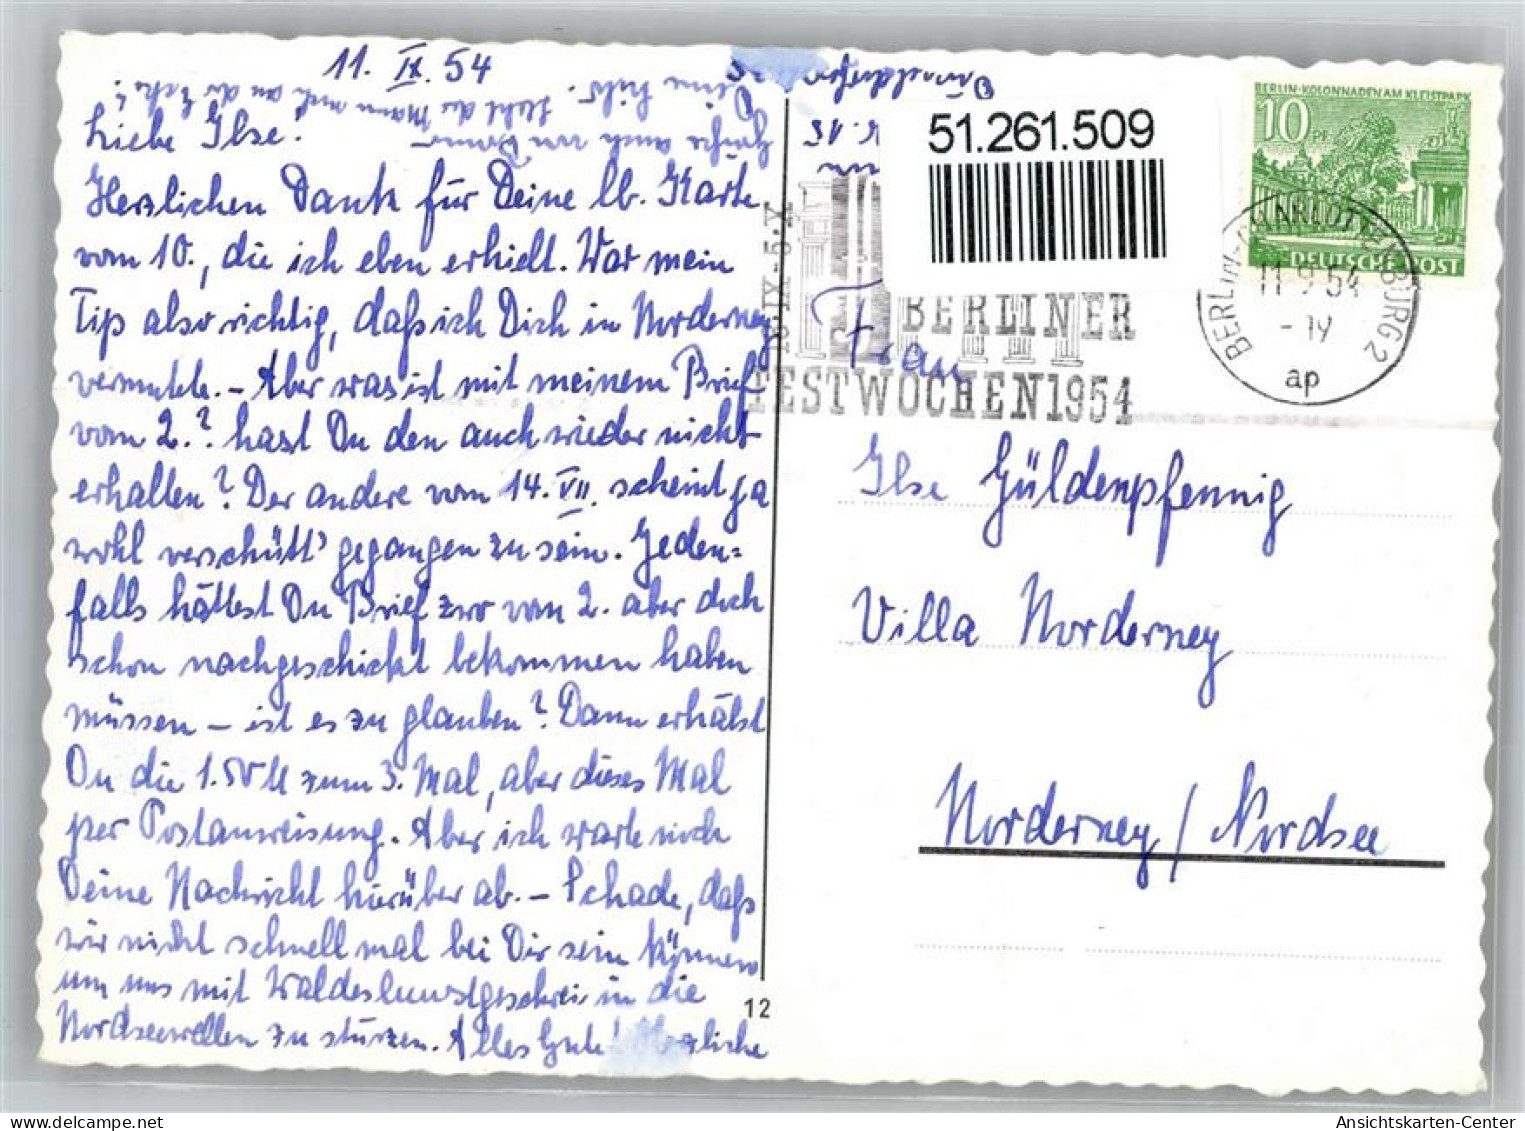 11. IX. 54
Liebe Ilse!
Herzlichen Dank für Deine lb. Karte
vom 10., die ich eben erhielt. War mein
Tip also richtig, daß ich Dich in Norderney
vermutete. – Aber was ist mit meinem Brief
vom 2.? hast Du den auch wieder nicht
erhalten? Der andere vom 14. VII. scheint ja
wohl verschütt' gegangen zu sein. Jeden=
falls hättest Du Brief zwo vom 2. aber doch
schon nachgeschickt bekommen haben
müssen – ist es zu glauben? Dann erhälst
Du die 1.50 M zum 3. Mal, aber dieses Mal
per Postanweisung. Aber ich warte noch
Deine Nachricht hierüber ab. – Schade, daß
wir nicht schnell mal bei Dir sein können
um uns mit Waldeslunstgeschrei in die
Nordseewellen zu stürzen. Alles Gute! Herzliche
Grüße auch von
Deine . Steht der Mann noch an der Ecke?
12
51.261.509
BERLIN-KOLONNADEN AM KLEISTPARK
10 PF
DEUTSCHE POST
BERLIN-CHARLOTTENBURG 2
11.9.54
-19
ap
IX-5.X
BERLINER
FESTWOCHEN 1954
Frau
Ilse Güldenpfennig
Villa Norderney
Norderney / Nordsee
oldthing.de
Ansichtskarten-Center